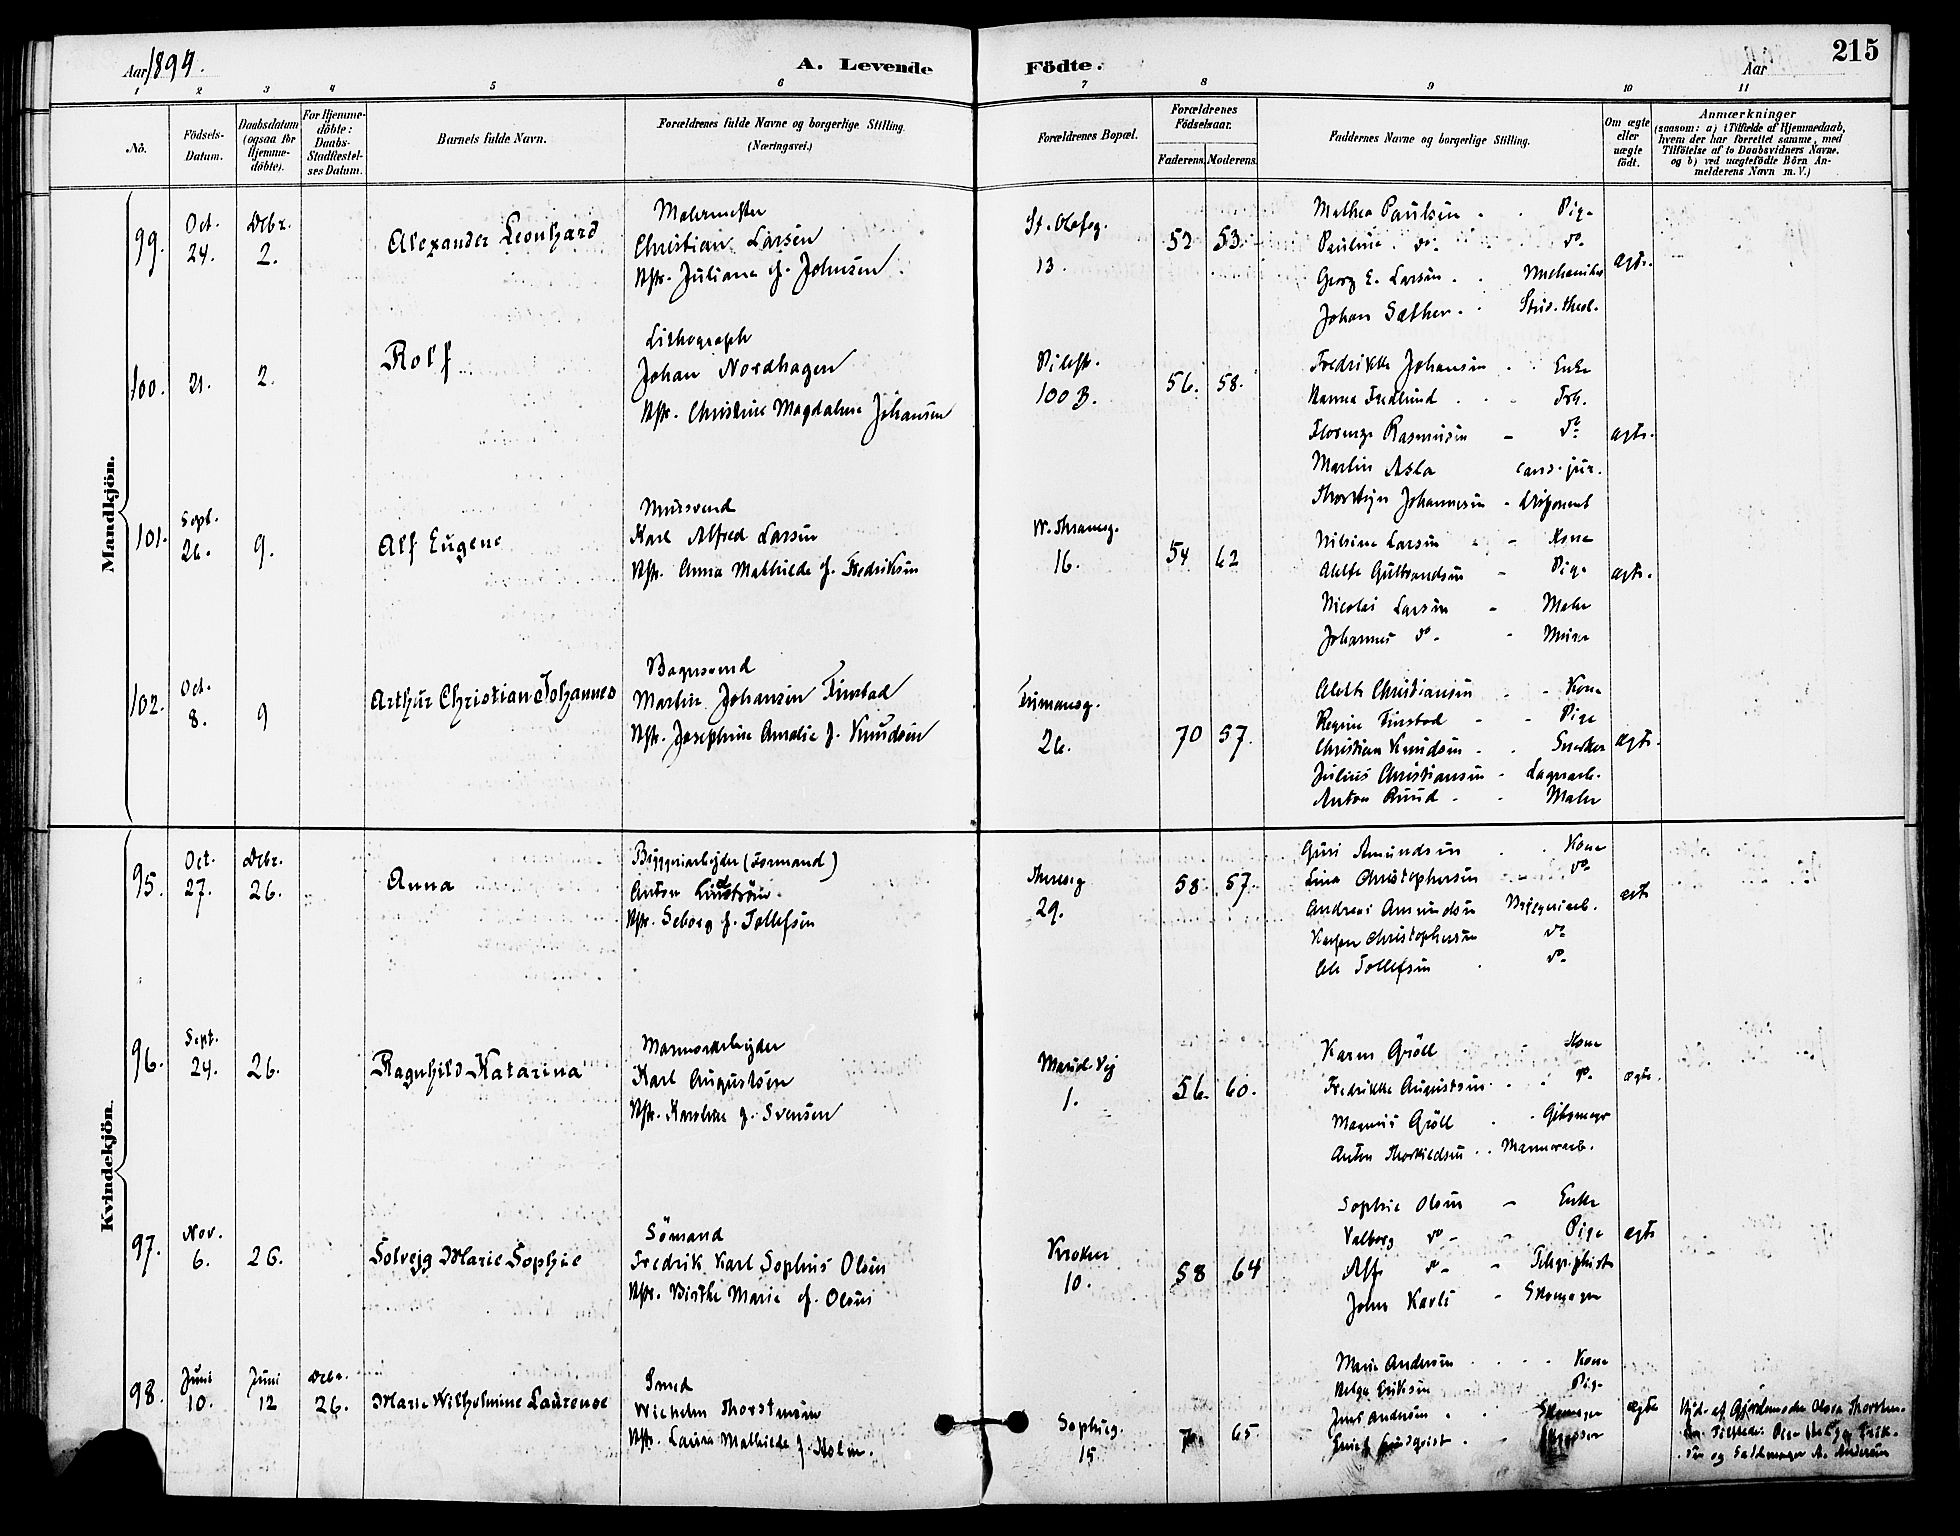 Aar 1894.
A. Levende Födte.
Aar
215
1 2 3 4 5 6 7 8 9 10 11
No.
Födsels-Datum.
Daabsdatum (ogsaa for Hjemme-döbte).
For Hjemme-döbte: Daabs-Stadfæstel-ses Datum.
Barnets fulde Navn.
Forældrenes fulde Navne og borgerlige Stilling. (Næringsvei.)
Forældrenes Bopæl.
Forældrenes Födselsaar.
Faderens. Moderens.
Faddernes Navne og borgerlige Stilling.
Om ægte eller uægte födt.
Anmærkninger
(saasom: a) i Tilfælde af Hjemmedaab,
hvem der har forrettet samme, med
Tilföielse af to Daabsvidners Navne.
og b) ved uægtefödte Börn An-
melderens Navn m. V.)
Mandkjön.
99.
Oct. 24.
Dcbr. 2.
Alexander Leonhard
Malermester
Christian Larsen
Hstr. Juliane f. Johnsen.
St. Olafsg. 13.
52 53
Mathea Paulsen - Pige
Pauline do - do
Georg E. Larsen - Mechaniker
Johan Sæther - Stud. theol.
ægte.
100.
21.
2.
Rolf
Lithograph
Johan Nordhagen
Hstr. Christine Magdalene Johansen
Pilestr. 100 B.
56. 58.
Fredrikke Johansen - Enke
Hanna Fredlund - Frk.
Rasmusen - do
Martin Asla cand. jur.
Johannesen - Disponent
ægte.
101.
Sept. 26.
9.
Alf Eugene
Mursvend
Karl Alfred Larsen
Hstr. Anna Mathilde f. Fredriksen
W. Thranesg. 16.
54 62
Nilsine Larsen - Kone
Alette Gulbrandsen - Pige
Nicolai Larsen - Maler
Johannes do - Murer
ægte.
102.
Oct. 8.
9
Arthur Christian Johannes
Bagersvend
Martin Johansen Finstad
Hstr. Josephine Amalie f. Knudsen
26.
70 57.
Alette Christiansen - Kone
Regine Finstad - Pige
Christian Knudsen - Snedker
Julius Christiansen - Lagerarb.
Anton Ruud - Maler
ægte.
Kvindekjön.
95.
Oct. 27.
Dcbr. 26.
Anna
Bryggeriarbejder (Formand)
Anton Lindström.
Hstr. Seborg f. Tollefsen
Theresg 29.
58. 57.
Guri Amundsen - Kone
Lina Christophersen - do
Andreas Amundsen Bryggeriarb.
Christophersen do
Ole Tollefsen - do
ægte
96.
Sept. 24.
26.
Ragnhild Katarina
Marmorarbejder
Karl Augustsen
Hstr. Karoline f. Svensen
Maridl. Vej 1.
56. 60.
Karen Gröll - Kone
Fredrikke Augustsen - do
Magnus Gröll - Gibsmager
Anton Thorkildsen - Marmorarb.
ægte.
97.
Nov. 6.
26.
Solvejg Marie Sophie
Sömand
Fredrik Karl Sophus Olsen
Hstr. Birthe Marie f. Olsen
Kroken 10.
58 64
Sophie Olsen - Enke
Valborg do - Pige
Alf do - Telegraphist
John Karls - Skomager
ægte
98.
Juni 10.
Juni 12
Dcbr. 26.
Marie Wilhelmine Laurense
Smed
Wilhelm Thorstensen
Hstr. Laura Mathilde f. Holm.
Sophieg. 15
65.
Marie Andersen - Kone
Helga Eriksen - Pige
Jens Andersen - Skomager
Lindqvist -
ægte
Hjd. af Gjordemoder Olava Thorsten-
sen. Tilstede: Pige Helga Erik-
sen og Andersen